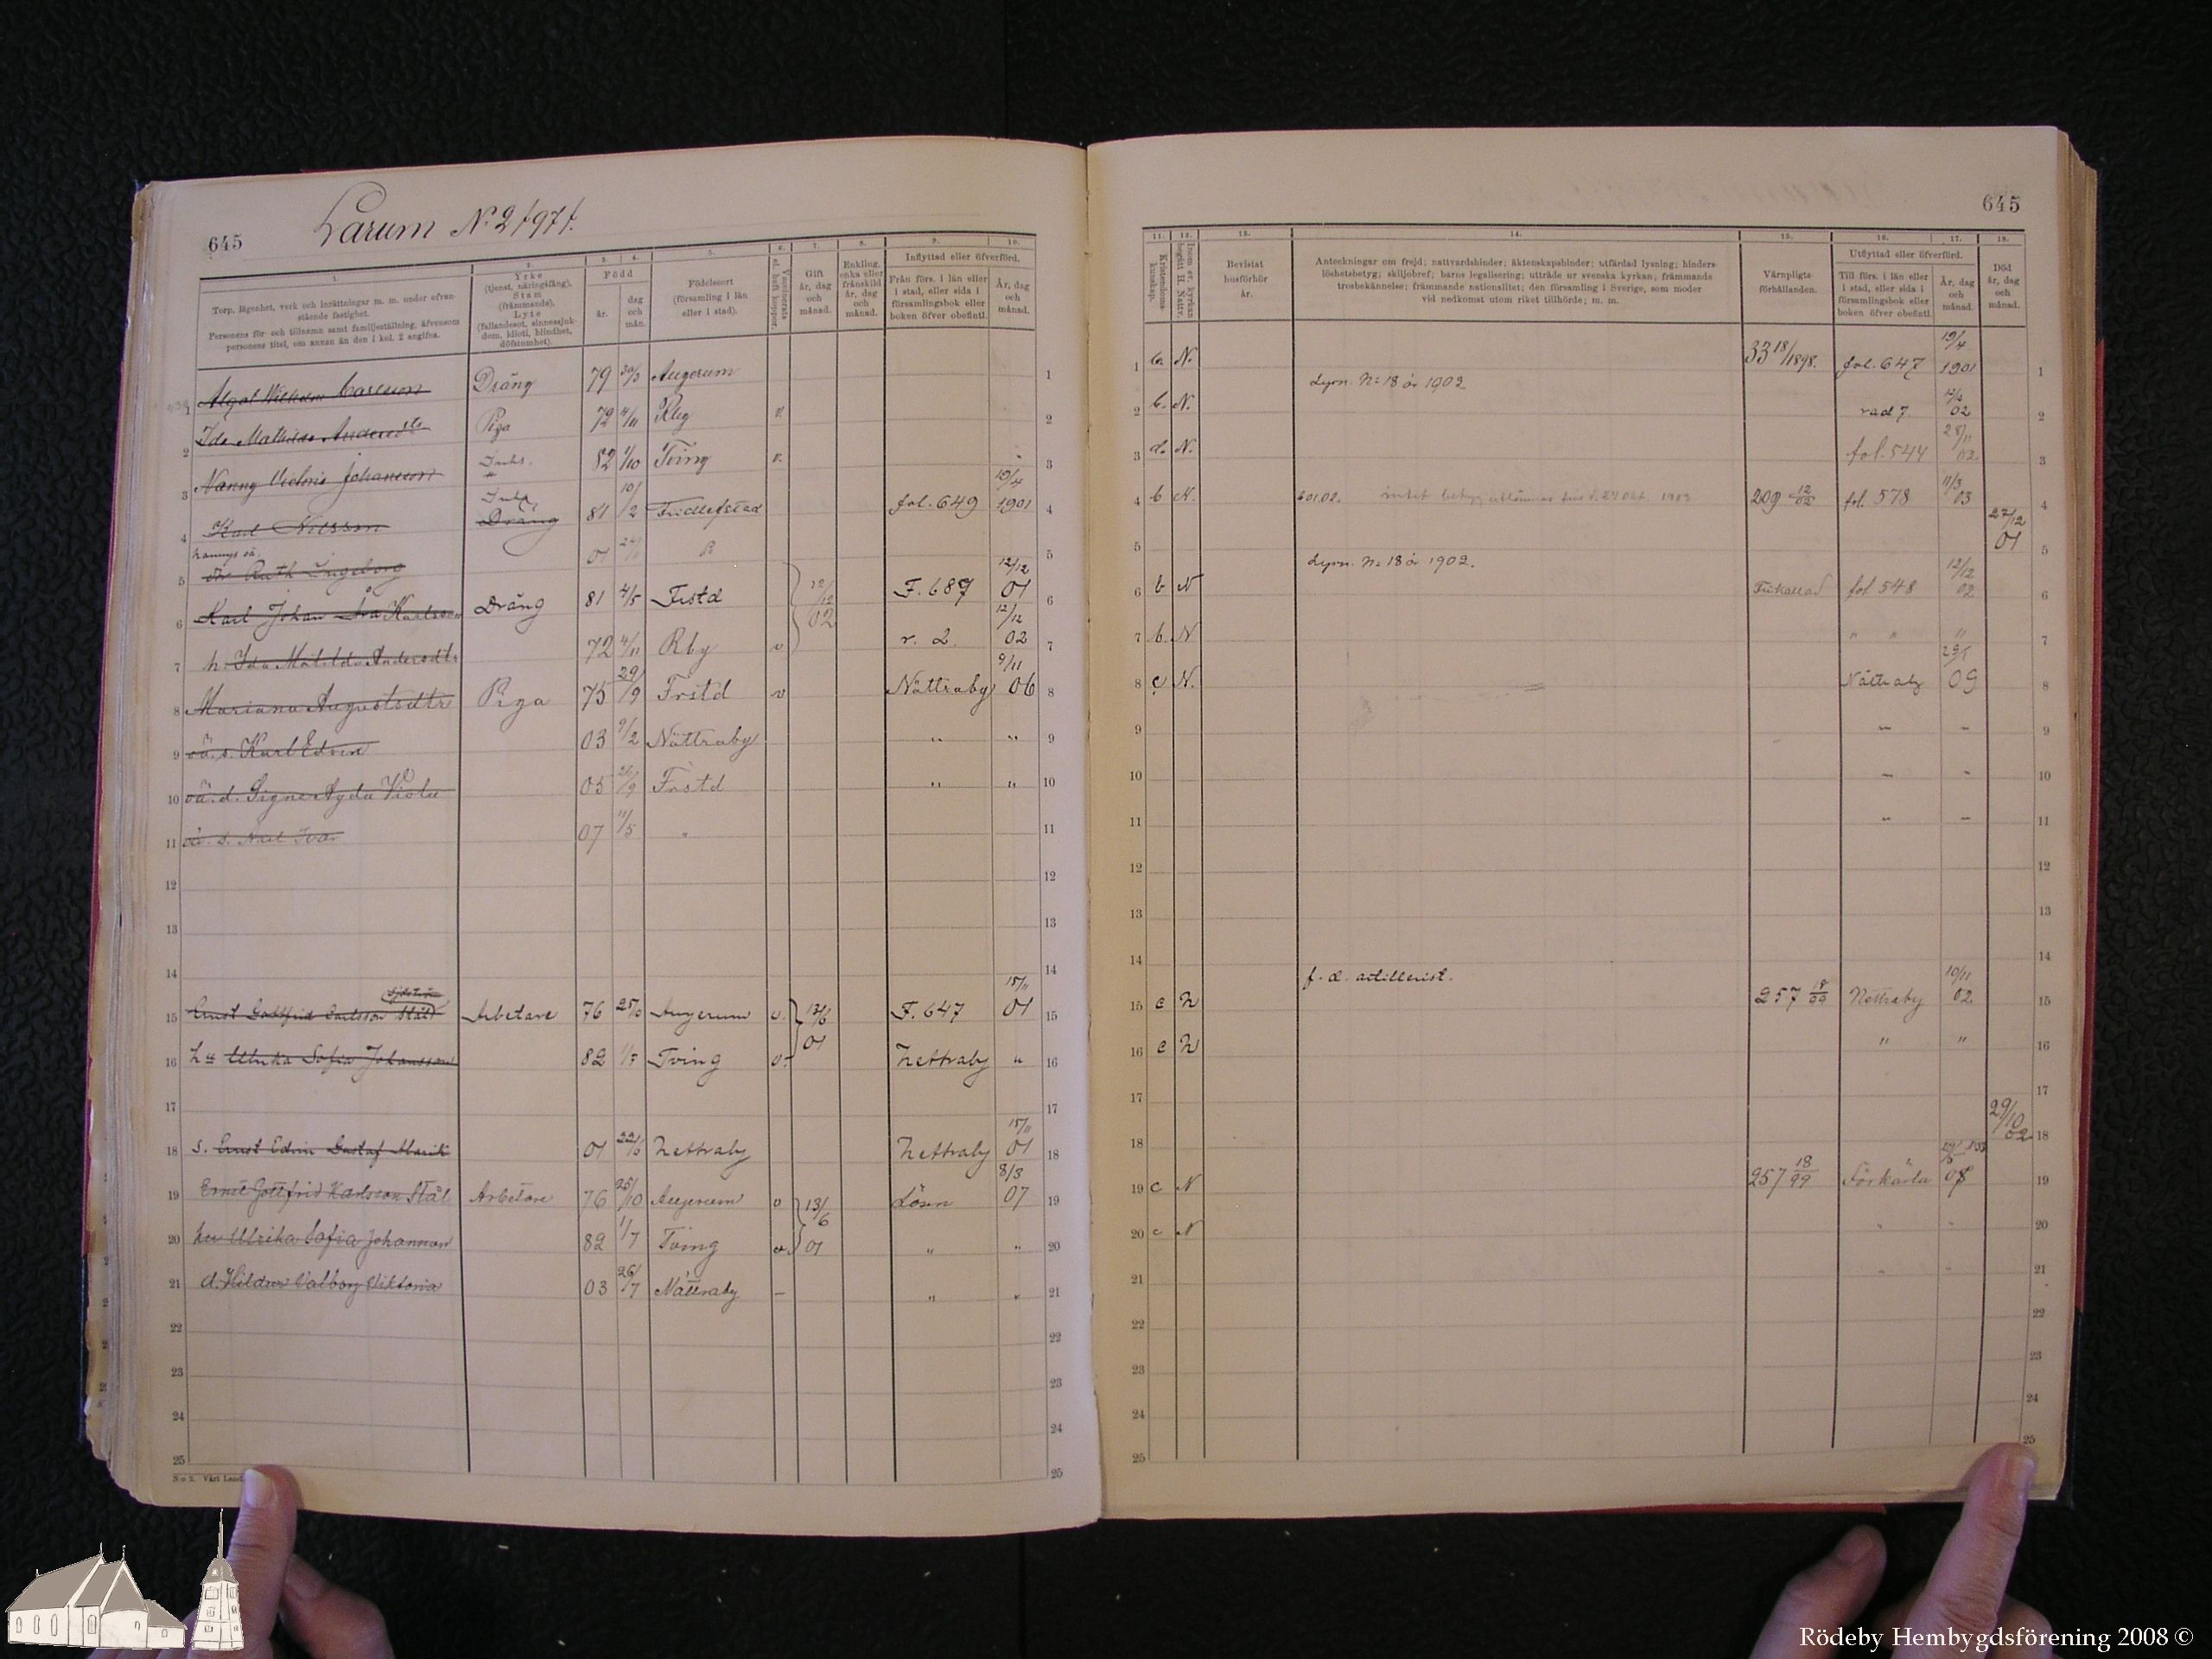 645
Larum No 2 /97/.
1. 2. 3. 4. 5. 6. 7. 8. 9. 10.
Torp, lägenhet, verk och inrättningar m. m. under ofvan-
stående fastighet.
Personens för- och tillnamn samt familjeställning, äfvensom
personens titel, om annan än den i kol. 2 angifna.
Yrke
(tjenst, näringsfång),
Stam
(främmande),
Lyte
(fallandesot, sinnessjuk-
dom, idioti, blindhet,
döfstumhet).
Född
år.
dag
och
mån.
Födelseort
(församling i län
eller i stad).
Vaccinerats
el. haft koppor.
Gift
år, dag
och
månad.
Enkling,
enka eller
frånskild
år, dag
och
månad.
Inflyttad eller öfverförd.
Från förs. i län eller
i stad, eller sida i
församlingsbok eller
boken öfver obefintl.
År, dag
och
månad.
1 Algot Wilhelm Carlsson Dräng 79 30/3 Augerum
2 Ida Mathilda Andersdtr Piga 72 4/11 Rby v.
3 Nanny Victoria Johansson Inhs. 82 1/10 Tving v.
4 Karl Nilsson Inhs Dräng 81 10/2 Fridlefstad fol. 649 19/4 1901
5 Nannys oä. dr Ruth Ingeborg 01 R
6 Karl Johan Karlsson Dräng 81 4/5 Frstd 12/12 02 F. 687 12/12 01
7 h. Ida Matilda Andersdtr 72 4/11 Rby v r. 2. 12/12 02
8 Mariana Augustsdtr Piga 75 29/9 Frstd v Nättraby 9/11 06
9 oä. s. Karl Edvin 03 9/2 Nättraby " "
10 oä. d. Signe Agda Viola 05 21/9 Frstd " "
11 oä. s. Karl Ivar 07 11/5 "
12
13
14
15 Ernst Gottfrid Carlsson Stål Arbetare 76 25/10 Augerum v. 13/6 01 F. 647 15/11 01
16 hu Ulrika Sofia Johansson 82 1/7 Tving v. Nettraby "
17
18 s. Ernst Edvin Gustaf 01 22/10 Nettraby Nettraby 15/11 01
19 Ernst Gottfrid Karlsson Stål Arbetare 76 25/10 Augerum v 13/6 01 Lösen 8/3 07
20 hu Ulrika Sofia Johansson 82 1/7 Tving v. " "
21 d. Hildur Valborg Viktoria 03 26/7 Nättraby – " "
22
23
24
25
N:o 2. Vårt Land
645
11. 12. 13. 14. 15. 16. 17. 18.
Kristendoms-
kunskap.
Inom sv. kyrkan
begått H. Nattv.
Bevistat
husförhör
år.
Anteckningar om frejd; nattvardshinder; äktenskapshinder; utfärdad lysning; hinders-
löshetsbetyg; skiljobref; barns legalisering; utträde ur svenska kyrkan; främmande
trosbekännelse; främmande nationalitet; den församling i Sverige, som moder
vid nedkomst utom riket tillhörde; m. m.
Värnpligts-
förhållanden.
Utflyttad eller öfverförd.
Till förs. i län eller
i stad, eller sida i
församlingsbok eller
boken öfver obefintl.
År, dag
och
månad.
Död
år, dag
och
månad.
1 N. 33 18/1898. fol. 647 19/4 1901
2 b. N. Lysn. No 18 år 1902 rad 7 12/12 02
3 N. fol. 544 28/11 02
4 b N. 209 12/02 fol. 578 11/3 03
5 27/12 01
6 b N Lysn. No 18 år 1902. Frikallad fol 548 12/12 02
7 b. N " " "
8 c N. Nättraby 09
9 – –
10 – –
11 – –
12
13
14
15 c N f. d. artillerist. 257 18/99 Nettraby 10/11 02
16 c N " "
17
18 29/10 02
19 c N 257 18/99 Förkärla 08
20 c N " "
21 " "
22
23
24
25
Rödeby Hembygdsförening 2008 ©